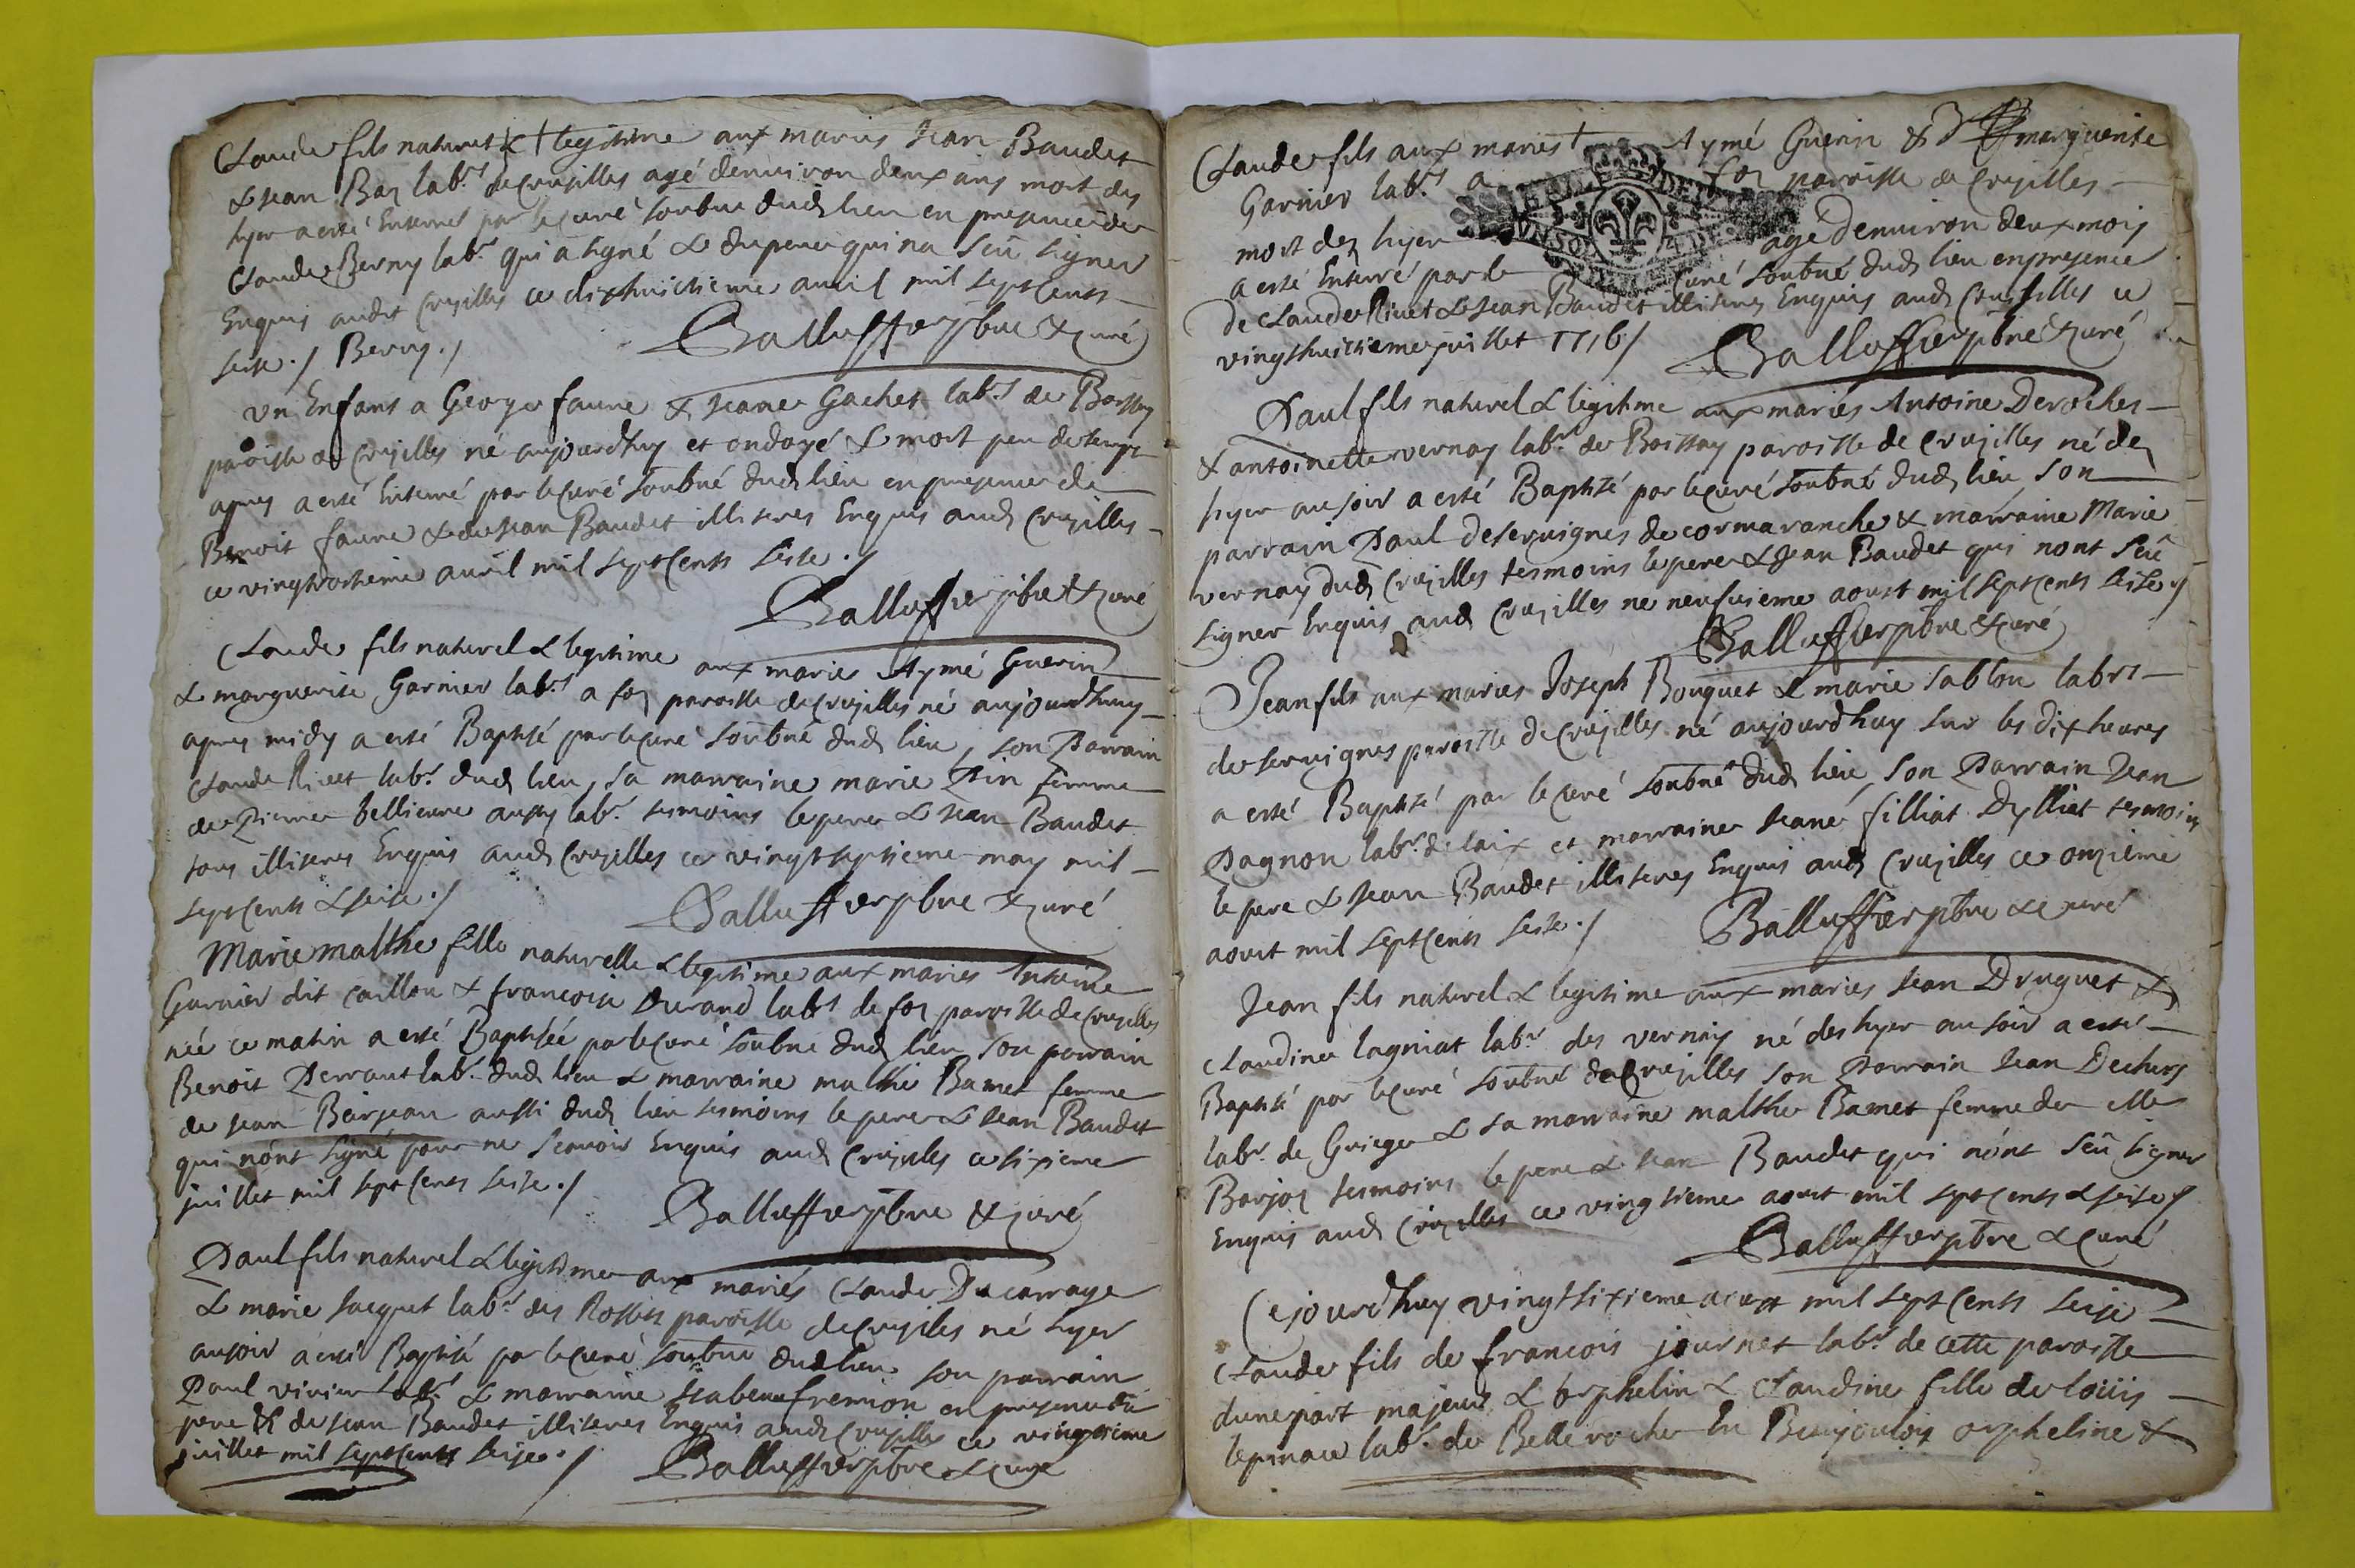 Claude fils naturel & † legitime aux maries Jean Baudet
& Jean Baz labrs de Crusilles agé denuiron deux ans mort des
hyer a esté Enterré par le curé soubné dud lieu en presence de
Claude Berny labr qui a signé & du pere qui na sceu signer
Enquis audit Crusilles ce dixhuictieme auril mil sept Cents
seise ./ Berny ./ Balluffier pbre & curé
un Enfant a George faure & Jeane Gachet labrs de Boissay
paroisse de Crusilles né aujourdhuy et ondoyé & mort peu de temps
apres a esté Enterré par le curé soubné dud lieu en presence de
Benoit faure & de Jean Baudet illiteres Enquis aud Crusilles
ce vingtroisieme auril mil sept Cents seise ./
Balluffier pbre & curé
Claude fils naturel & legitime aux maries Aymé Guerin
& marguerite Garnier labrs a foz paroisse de Crusilles né aujourdhuy
apres midy a esté Baptisé par le curé soubné dud lieu, son Parrain
Claude Rivet labr dud lieu, sa marraine marie Pin femme
de Pierre bellieure aussy labr. tesmoins le pere & Jean Baudet
tous illiteres Enquis aud Crusilles ce vingtseptieme may mil
sept Cents & seise ./ Balluffier pbre & curé
Marie malthe fille naturelle & legitime aux maries Antoine
Garnier dit caillou & francoise Durand labrs de foz paroisse de Crusilles
née ce matin a esté Baptisée par le curé soubné dud lieu son parrain
Benoit Perraut labr. dud lieu & marraine malthe Bamet femme
de Jean Barjean aussi dud lieu tesmoins le pere & Jean Baudet
qui nont signé pour ne scauoir Enquis aud Crusilles ce sixieme
juillet mil sept Cents seise ./ Balluffier pbre & curé
Paul fils naturel & legitime aux mariés Claude Ducarrage
& marie Jacquet labrs des Rossits paroisse de Crusilles né hyer
au soir a esté Baptisé par le curé soubné dud lieu son parrain
Paul vivier labr. & marraine Isabeau fremion en presence du
pere & de Jean Baudet illiteres Enquis aud Crusilles ce
juillet mil sept Cents seise ./ Balluffier pbre & curé
Claude fils aux maries † Aymé Guerin & marguerite
Garnier labrs a foz paroisse de Crusilles
mort dez hyer agé denuiron deux mois
a esté Enterré par le curé soubné dud lieu en presence
de Claude Rivet & Jean Baudet illiteres Enquis aud Crusilles ce
vingthuictieme juillet 1716 / Balluffier pbre & curé
Paul fils naturel & legitime aux mariés Antoine Deroches
& antoinette vernay labrs de Boissay paroisse de Crusilles né dez
hyer au soir a esté Baptisé par le curé soubné dud lieu, son
parrain Paul deseruignes de cormaranche & marraine Marie
vernay dud Crusilles tesmoins le pere & Jean Baudet qui nont sceu
signer Enquis aud Crusilles ce neufuieme aoust mil sept Cents seise /
Balluffier pbre & curé
Jean fils aux maries Joseph Bouquet & marie sablon labrs
de seruignes paroisse de Crusilles né aujourdhuy sur les dix heures
a esté Baptisé par le curé soubné dud lieu, son Parrain Jean
Pagnon labr. de laix et marraine Jeane filliat tesmoins
le pere & Jean Baudet illiteres Enquis aud Crusilles ce onzieme
aoust mil sept Cents seise ./ Balluffier pbre & curé
Jean fils naturel & legitime aux maries Jean Druguet &
Claudine lagniat labrs des vernays né des hyer au soir a esté
Baptisé par le curé soubné de Crusilles son Parrain Jean Dechurs
labr. de Grieges & sa marraine malthe Bamet femme de
Barjoz tesmoins le pere & Jean Baudet qui nont sceu signer
Enquis aud Crusilles ce vingtieme aoust mil sept Cents & seise /
Balluffier pbre & Curé
Cejourdhuy vingtsixieme aoust mil sept Cents seise
Claude fils de francois journet labr. de cette paroisse
dune part majeur & orphelin & Claudine fille de loüis
lepinace labr. de Belleroche En Beaujoulois orpheline &